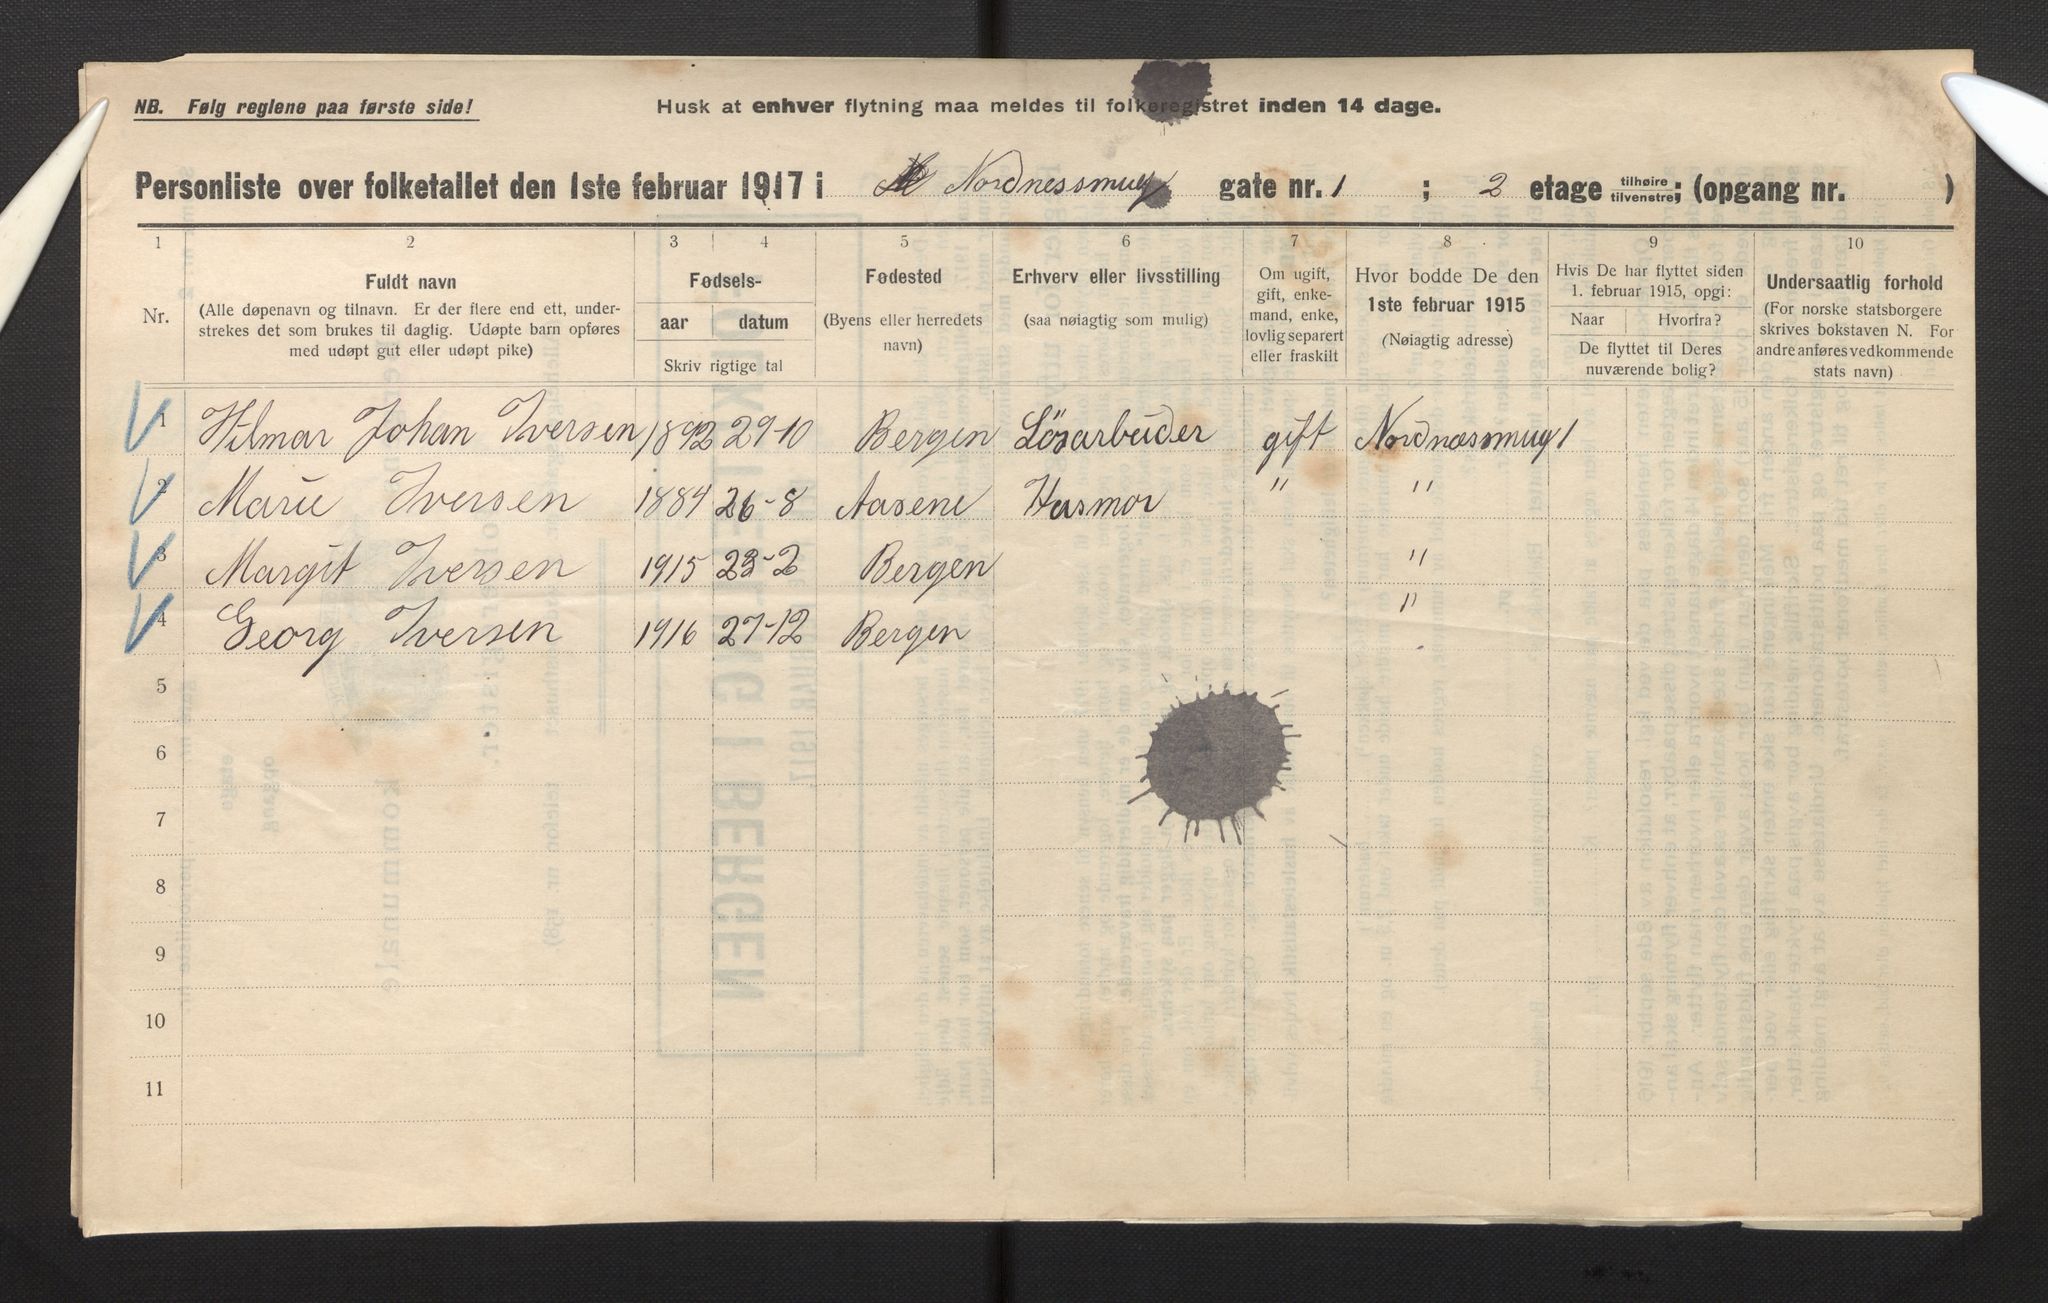 NB. Følg reglene paa første side! Husk at enhver flytning maa meldes til folkeregistret inden 14 dage.
Personliste over folketallet den 1ste februar 1917 i Nordnessmug gate nr. 1 ; 2 etage tilhøire tilvenstre; (opgang nr. )
1 2 3 4 5 6 7 8 9 10
Nr.
Fuldt navn
(Alle døpenavn og tilnavn. Er der flere end ett, under-
strekes det som brukes til daglig. Udøpte barn opføres
med udøpt gut eller udøpt pike)
Fødsels-
aar datum
Skriv rigtige tal
Fødested
(Byens eller herredets
navn)
Erhverv eller livsstilling
(saa nøiagtig som mulig)
Om ugift,
gift, enke-
mand, enke,
lovlig separert
eller fraskilt
Hvor bodde De den
1ste februar 1915
(Nøiagtig adresse)
Hvis De har flyttet siden
1. februar 1915, opgi:
Naar Hvorfra?
De flyttet til Deres
nuværende bolig?
Undersaatlig forhold
(For norske statsborgere
skrives bokstaven N. For
andre anføres vedkommende
stats navn)
1 Hilmar Johan Iversen 1892 29-10 Bergen Lösarbeider gift Nordnæssmug 1
2 Marie Iversen 1884 26-8 Aasene Husmor " "
3 Margit Iversen 1915 23-2 Bergen "
4 Georg Iversen 1916 27-12 Bergen "
5
6
7
8
9
10
11